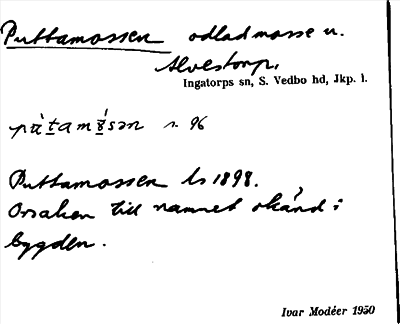 Puttamossen odladmosse u.
Alvestorp,
Ingatorps sn, S. Vedbo hd, Jkp. l.
s. 96
Puttamossen Ls 1898.
Orsaken till namnet okänd i
bygden.
Ivar Modéer 1950